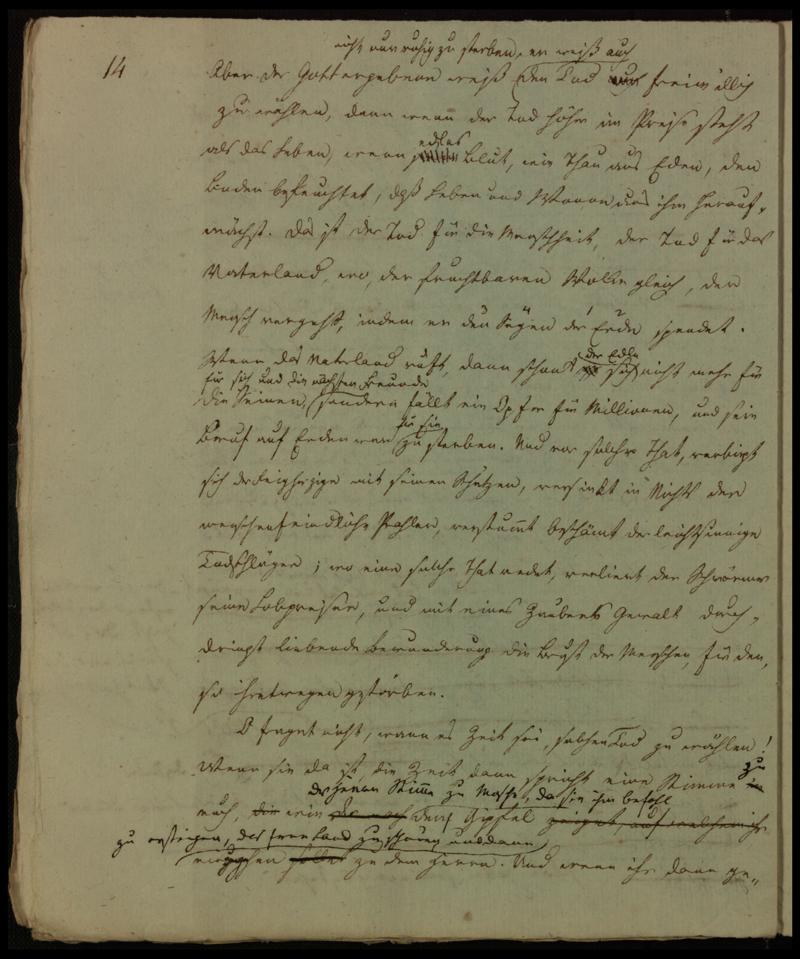 14
nicht nur ruhig zu sterben, er weiß auch
Aber der Gottergebene weiß den Tod auch freiwillig
zu wählen, dann wenn der Tod höher im Preise steht
edles
als das Leben, wenn Blut, wie Thau aus Eden, den
Boden befeuchtet, daß Leben und Wonne aus ihm herauf-
wächst. Das ist der Tod für die Menschheit, der Tod für das
Vaterland, wo, der fruchtbaren Wolke gleich, der
Mensch vergeht, indem er den Segen der Erde spendet.
der Edle
Wenn das Vaterland ruft, dann schont sich nicht mehr für
für sich und die nächsten Freunde
die Seinen, sondern fällt ein Opfer für Millionen, und sein
für sie
Beruf auf Erden war zu sterben. Und vor solcher That, verbirgt
sich der Feigherzige mit seinen Schätzen, versinkt in Nichts der
menschenfeindliche Prahler, verstummt beschämt der leichtsinnige
Todschläger; wo eine solche That redet, verliert der Schwärmer
seine Lobpreiser, und mit eines Zaubers Gewalt durch-
dringt liebende Bewunderung die Brust der Menschen, für den,
so ihretwegen gestorben.
O fraget nicht, wann es Zeit sei, solchen Tod zu wählen!
Wenn sie da ist, die Zeit dann spricht eine Stimme zu
des Herren Stimme zu Mose, da sie ihm befahl
euch, die wie dem Gipfel zeigt, auf welchem ihr
zu ersteigen, das ferne Land zu schauen und dann
zu dem Herrn. Und wenn ihr dann ge-